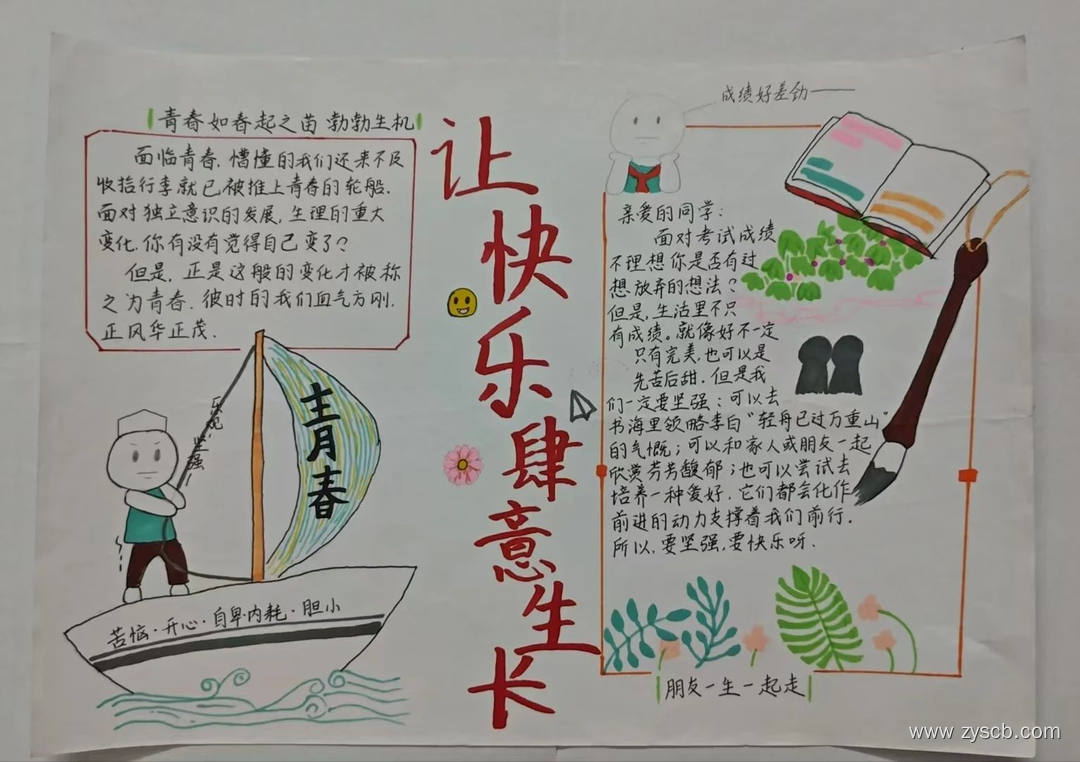 青春如春起之苗勃勃生机
面临青春,懵懂的我们还来不及
收拾行李就已被推上青春的轮船.
面对独立意识的发展,生理的重大
变化,你有没有觉得自己变了?
但是,正是这般的变化才被称
之为青春.彼时的我们血气方刚.
正风华正茂.
乐观
坚强
青春
苦恼·开心·自卑·内耗·胆小
让快乐肆意生长
成绩好差劲——
亲爱的同学:
面对考试成绩
不理想你是否有过
想放弃的想法?
但是,生活里不只
有成绩。就像好不一定
只有完美,也可以是
先苦后甜.但是我
们一定要坚强:可以去
书海里领略李白"轻舟已过万重山"
的气慨;可以和家人或朋友一起
欣赏芬芳馥郁;也可以尝试去
培养一种爱好.它们都会化作
前进的动力支撑着我们前行.
所以,要坚强,要快乐呀.
朋友一生一起走
www.zyscb.com